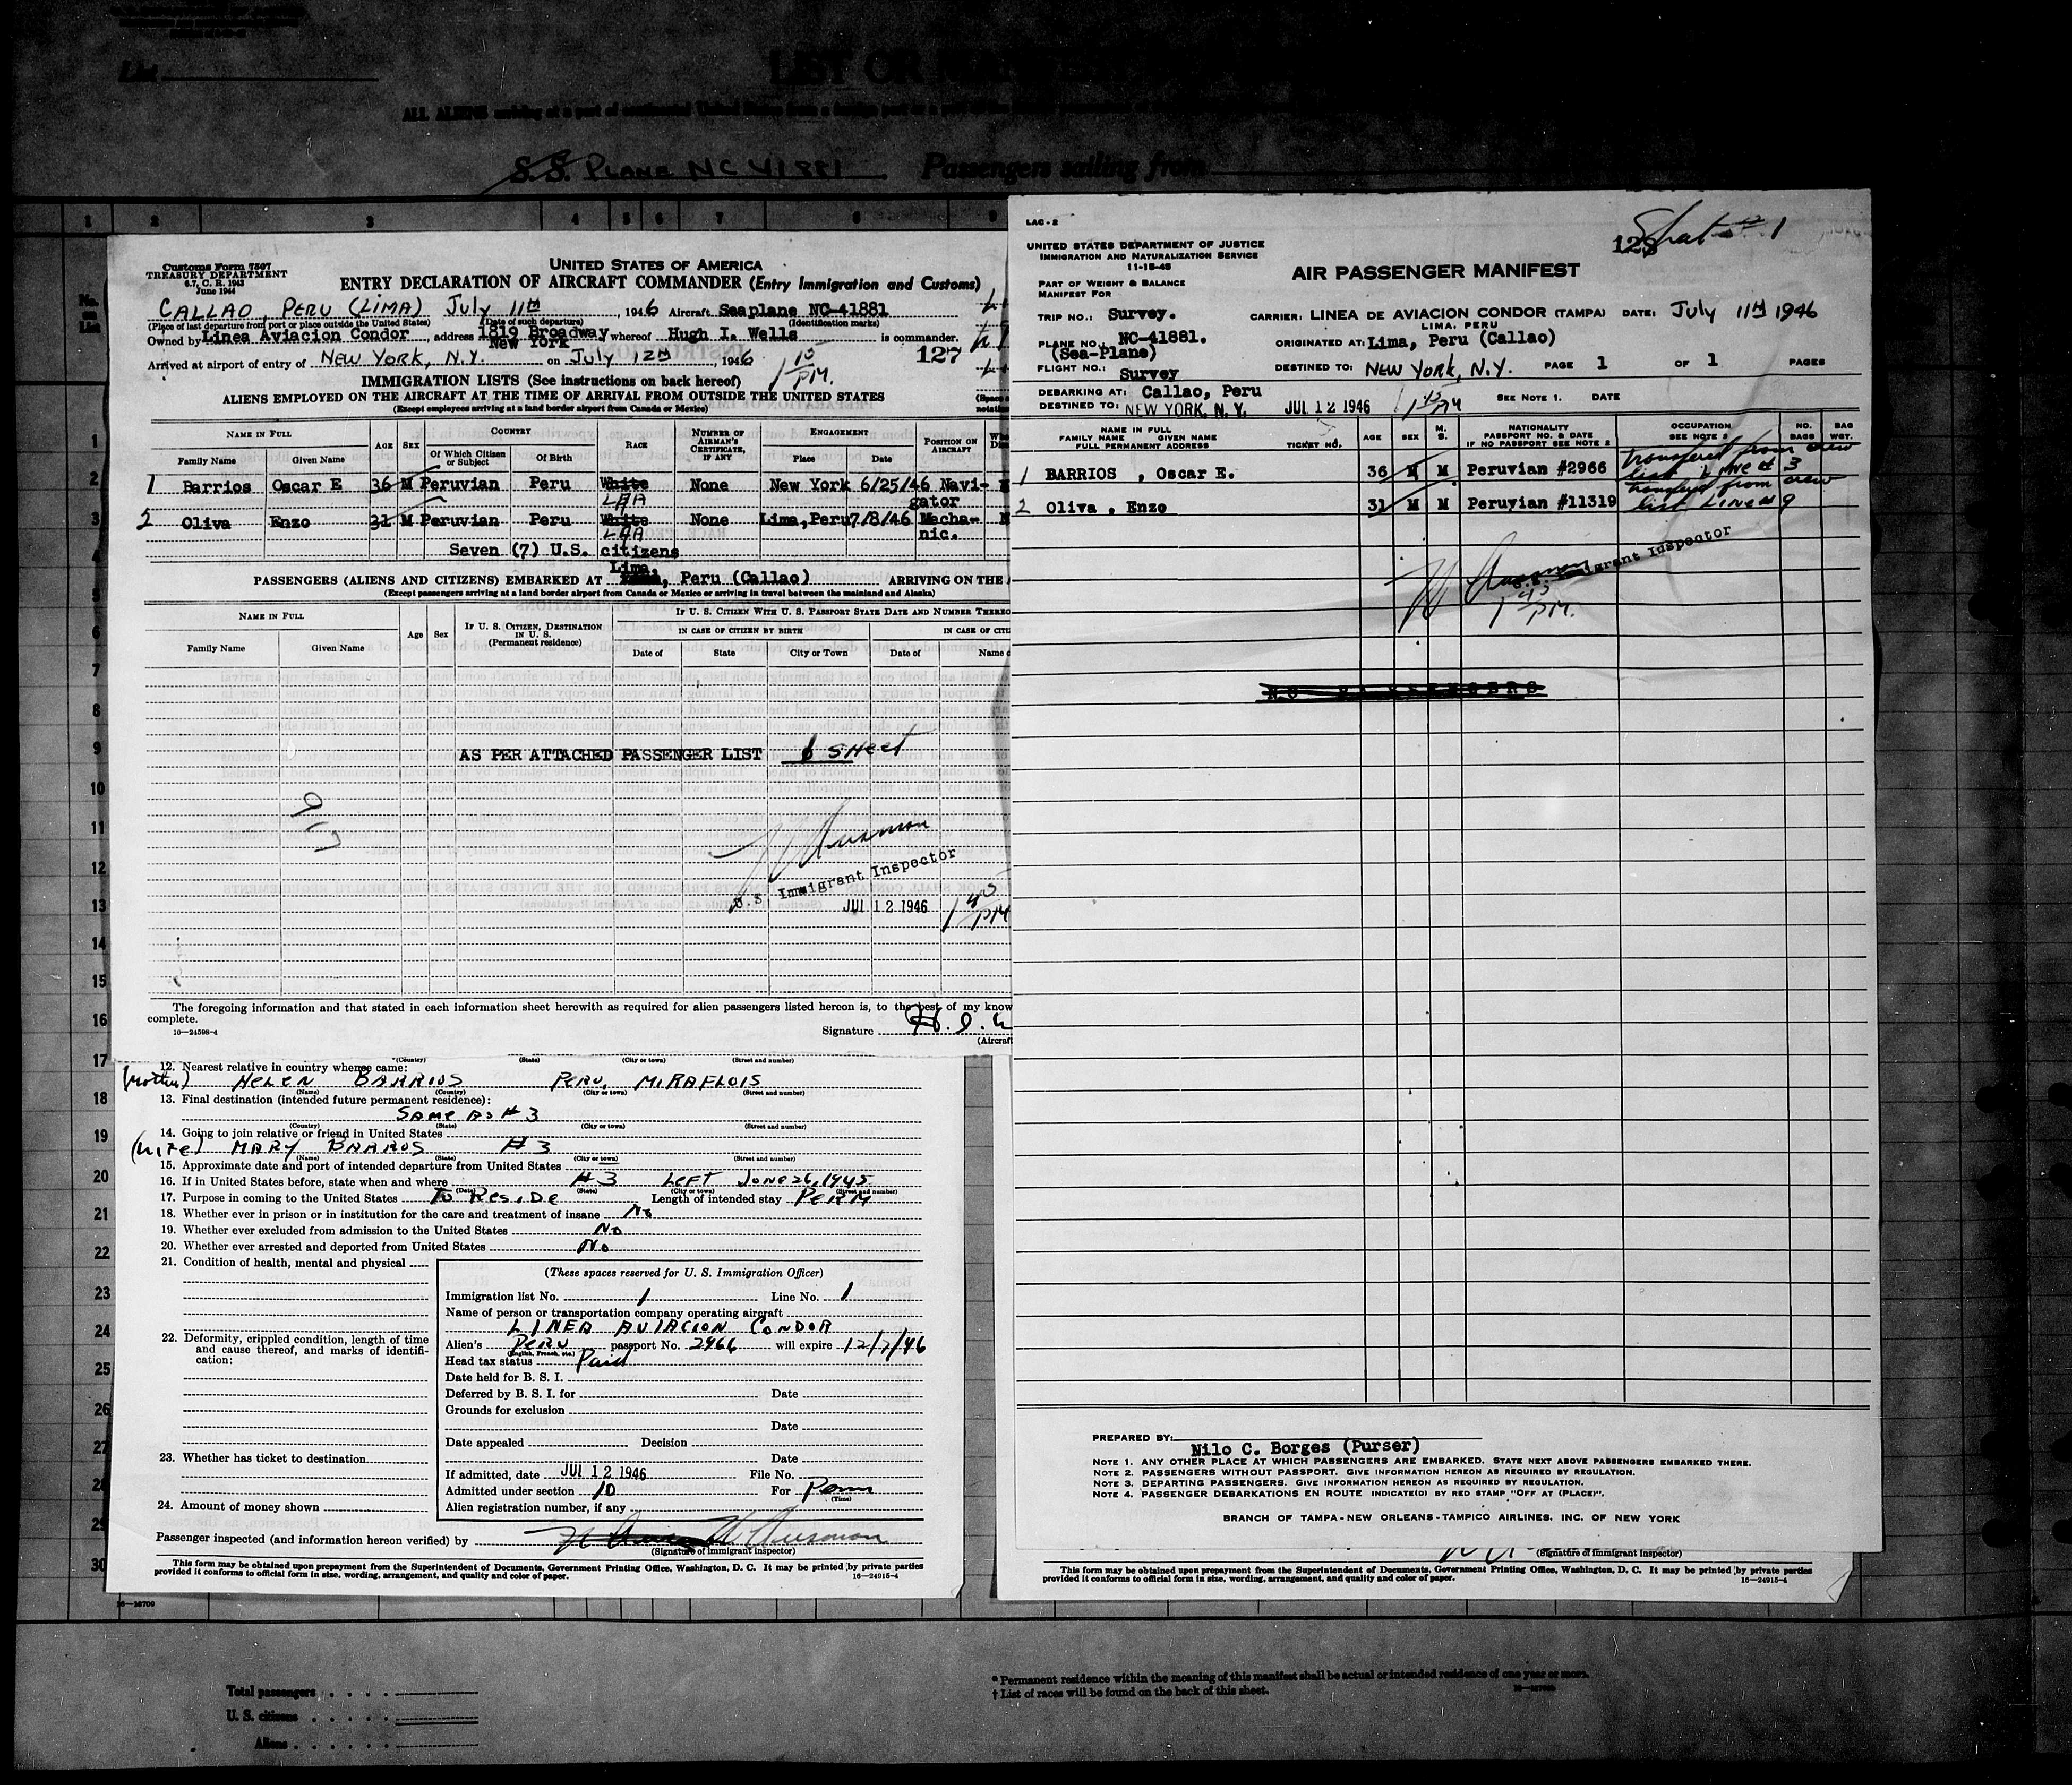 List
LIST OR
ALL ALIENS arriving at a port of continental United States from a foreign port
S.S. PLANE NC 41881 Passengers sailing from
1 2 3 4 5 6 7 8 9
No. on List
Customs Form 7507
TREASURY DEPARTMENT
6.7, C. R. 1943
June 1944
UNITED STATES OF AMERICA
ENTRY DECLARATION OF AIRCRAFT COMMANDER (Entry Immigration and Customs)
CALLAO, PERU (LIMA) July 11th, 1946 Aircraft Seaplane NC-41881
(Place of last departure from port or place outside the United States) (Date of such departure) (Identification marks)
Owned by Linea Aviacion Condor, address 1819 Broadway New York whereof Hugh I. Wells is commander.
Arrived at airport of entry of NEW YORK, N.Y. on July 12th, 1946 127
PM.
IMMIGRATION LISTS (See instructions on back hereof)
ALIENS EMPLOYED ON THE AIRCRAFT AT THE TIME OF ARRIVAL FROM OUTSIDE THE UNITED STATES
(Except employees arriving at a land border airport from Canada or Mexico)
NAME IN FULL AGE SEX COUNTRY RACE NUMBER OF AIRMAN'S CERTIFICATE, IF ANY ENGAGEMENT POSITION ON AIRCRAFT
Family Name Given Name Of Which Citizen or Subject Of Birth Place Date
1 Barrios Oscar E 36 M Peruvian Peru White None New York 6/25/46 Navigator
2 Oliva Enzo 31 M Peruvian Peru White None Lima, Peru 7/8/46 Mechanic.
Seven (7) U.S. citizens
PASSENGERS (ALIENS AND CITIZENS) EMBARKED AT Lima, Peru (Callao) ARRIVING ON THE
(Except passengers arriving at a land border airport from Canada or Mexico or arriving in travel between the mainland and Alaska)
NAME IN FULL Age Sex IF U. S. CITIZEN, DESTINATION IN U. S. (Permanent residence) IF U. S. CITIZEN WITH U. S. PASSPORT STATE DATE AND NUMBER THEREO
IN CASE OF CITIZEN BY BIRTH IN CASE OF CITI
Family Name Given Name Date of State City or Town Date of Name
AS PER ATTACHED PASSENGER LIST 1 SHEET
U.S. Immigrant Inspector
JUL 12 1946 1 45 PM
The foregoing information and that stated in each information sheet herewith as required for alien passengers listed hereon is, to the best of my know
complete.
16—24598-4
Signature H. I. W
(Aircraft
(Country) (State) (City or town) (Street and number)
12. Nearest relative in country whence came:
(Mother) HELEN BARRIOS PERU, MIRAFLOIS
(Name) (Country) (City or town) (Street and number)
13. Final destination (intended future permanent residence):
SAME AS # 3
(Country) (State) (City or town) (Street and number)
14. Going to join relative or friend in United States
(WIFE) MARY BARRIOS # 3
(Name) (State) (City or town) (Street and number)
15. Approximate date and port of intended departure from United States
16. If in United States before, state when and where # 3 LEFT JUNE 26, 1945
(Date) (State) (City or town) (Street and number)
17. Purpose in coming to the United States To Reside Length of intended stay PERM
18. Whether ever in prison or in institution for the care and treatment of insane No
19. Whether ever excluded from admission to the United States No
20. Whether ever arrested and deported from United States No
21. Condition of health, mental and physical
22. Deformity, crippled condition, length of time and cause thereof, and marks of identification:
23. Whether has ticket to destination
24. Amount of money shown
(These spaces reserved for U. S. Immigration Officer)
Immigration list No. 1 Line No. 1
Name of person or transportation company operating aircraft
LINEA AVIACION CONDOR
Alien's PERU passport No. 2966 will expire 12/7/46
(English, French, etc.)
Head tax status Paid
Date held for B. S. I.
Deferred by B. S. I. for Date
Grounds for exclusion
Date
Date appealed Decision
Date
If admitted, date JUL 12 1946 File No.
Admitted under section 10 For Perm
(Time)
Alien registration number, if any
Passenger inspected (and information hereon verified) by
(Signature of immigrant inspector)
This form may be obtained upon prepayment from the Superintendent of Documents, Government Printing Office, Washington, D. C. It may be printed by private parties
provided it conforms to official form in size, wording, arrangement, and quality and color of paper. 16—24915-4
LAC-2
UNITED STATES DEPARTMENT OF JUSTICE
IMMIGRATION AND NATURALIZATION SERVICE
11-15-45
AIR PASSENGER MANIFEST
PART OF WEIGHT & BALANCE
MANIFEST FOR
TRIP NO.: Survey. CARRIER: LINEA DE AVIACION CONDOR (TAMPA) DATE: July 11th 1946
LIMA, PERU
PLANE NO.: NC-41881. ORIGINATED AT: Lima, Peru (Callao)
(Sea-Plane)
FLIGHT NO.: Survey DESTINED TO: NEW YORK, N.Y. PAGE 1 OF 1 PAGES
DEBARKING AT: Callao, Peru SEE NOTE 1. DATE
DESTINED TO: NEW YORK, N. Y. JUL 12 1946 1 45 PM
NAME IN FULL
FAMILY NAME GIVEN NAME
FULL PERMANENT ADDRESS TICKET NO. AGE SEX M. S. NATIONALITY PASSPORT NO. & DATE IF NO PASSPORT SEE NOTE 2 OCCUPATION SEE NOTE 2 NO. BAGS BAG WGT.
1 BARRIOS , Oscar E. 36 M M Peruvian #2966 transferred from crew list Line # 3
2 Oliva , Enzo 31 M M Peruvian #11319 transferred from crew list Line # 9
U.S. Immigrant Inspector
1 45 PM.
NO PASSENGERS
PREPARED BY:
Nilo C. Borges (Purser)
NOTE 1. ANY OTHER PLACE AT WHICH PASSENGERS ARE EMBARKED. STATE NEXT ABOVE PASSENGERS EMBARKED THERE.
NOTE 2. PASSENGERS WITHOUT PASSPORT. GIVE INFORMATION HEREON AS REQUIRED BY REGULATION.
NOTE 3. DEPARTING PASSENGERS. GIVE INFORMATION HEREON AS REQUIRED BY REGULATION.
NOTE 4. PASSENGER DEBARKATIONS EN ROUTE INDICATE(D) BY RED STAMP "OFF AT (PLACE)".
BRANCH OF TAMPA-NEW ORLEANS-TAMPICO AIRLINES, INC. OF NEW YORK
(Signature of immigrant inspector)
This form may be obtained upon prepayment from the Superintendent of Documents, Government Printing Office, Washington, D. C. It may be printed by private parties
provided it conforms to official form in size, wording, arrangement, and quality and color of paper. 16—24915-4
1
2
3
4
5
6
7
8
9
10
11
12
13
14
15
16
17
18
19
20
21
22
23
24
25
26
27
28
29
30
16—16709
Total passengers
U. S. citizens
Aliens
* Permanent residence within the meaning of this manifest shall be actual or intended residence of one year or more.
† List of races will be found on the back of this sheet.